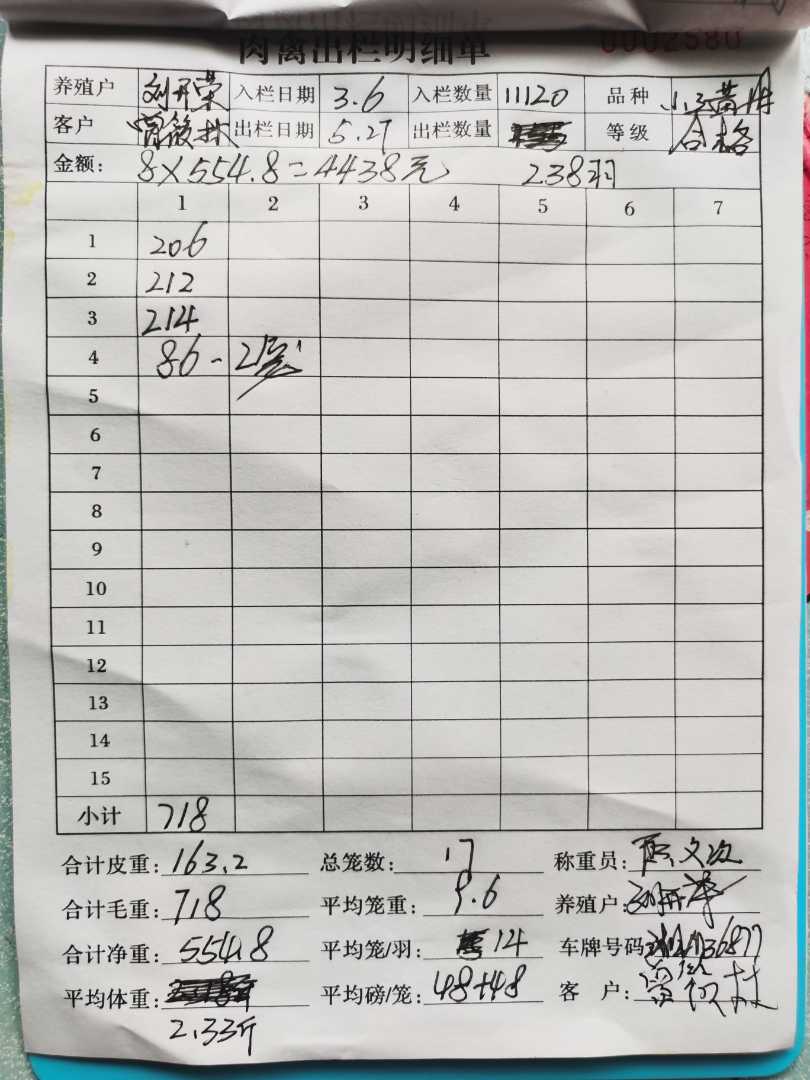 肉禽出栏明细单 0002580
养殖户 刘开荣 入栏日期 3.6 入栏数量 11120 品种
客户 出栏日期 5.27 出栏数量 等级 合格
金额: 8×554.8=4438元 238羽
1 2 3 4 5 6 7
1 206
2 212
3 214
4 86-21
5
6
7
8
9
10
11
12
13
14
15
小计 718
合计皮重: 163.2 总笼数: 17 称重员:
合计毛重: 718 平均笼重: 9.6 养殖户: 刘开荣
合计净重: 554.8 平均笼/羽: 14 车牌号码:
平均体重: 平均磅/笼: 48+48 客 户:
2.33斤